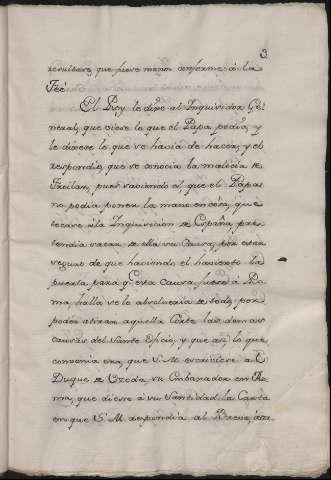 3
resultare, que fuere menos conforme à la
Feé.
El Rey le dixo al Inquisidor Ge-
neral, que viese lo que el Papa pedia, y
le dixese lo que se havia de hacer; y el
respondio, que se conocia la malicia de
Froilan, pues saviendo el, que el Papa
no podia poner la mano en cosa, que
tocare à la Inquisicion de España, pre-
tendia sacar de ella su Causa, por estar
seguro de que haciendo el
puerta para q.e esta Causa fuese à Ro-
ma, halla se le absolveria de todo, por
poder atraer aquella Corte las demas
causas del Santo Oficio, y que asi lo que
convenia era, que S. M. escriviese al
Duque de Uzeda, su Embaxador en Ro-
ma, que diese à su Santidad la Carta
en que S. M. respondia al Breve,